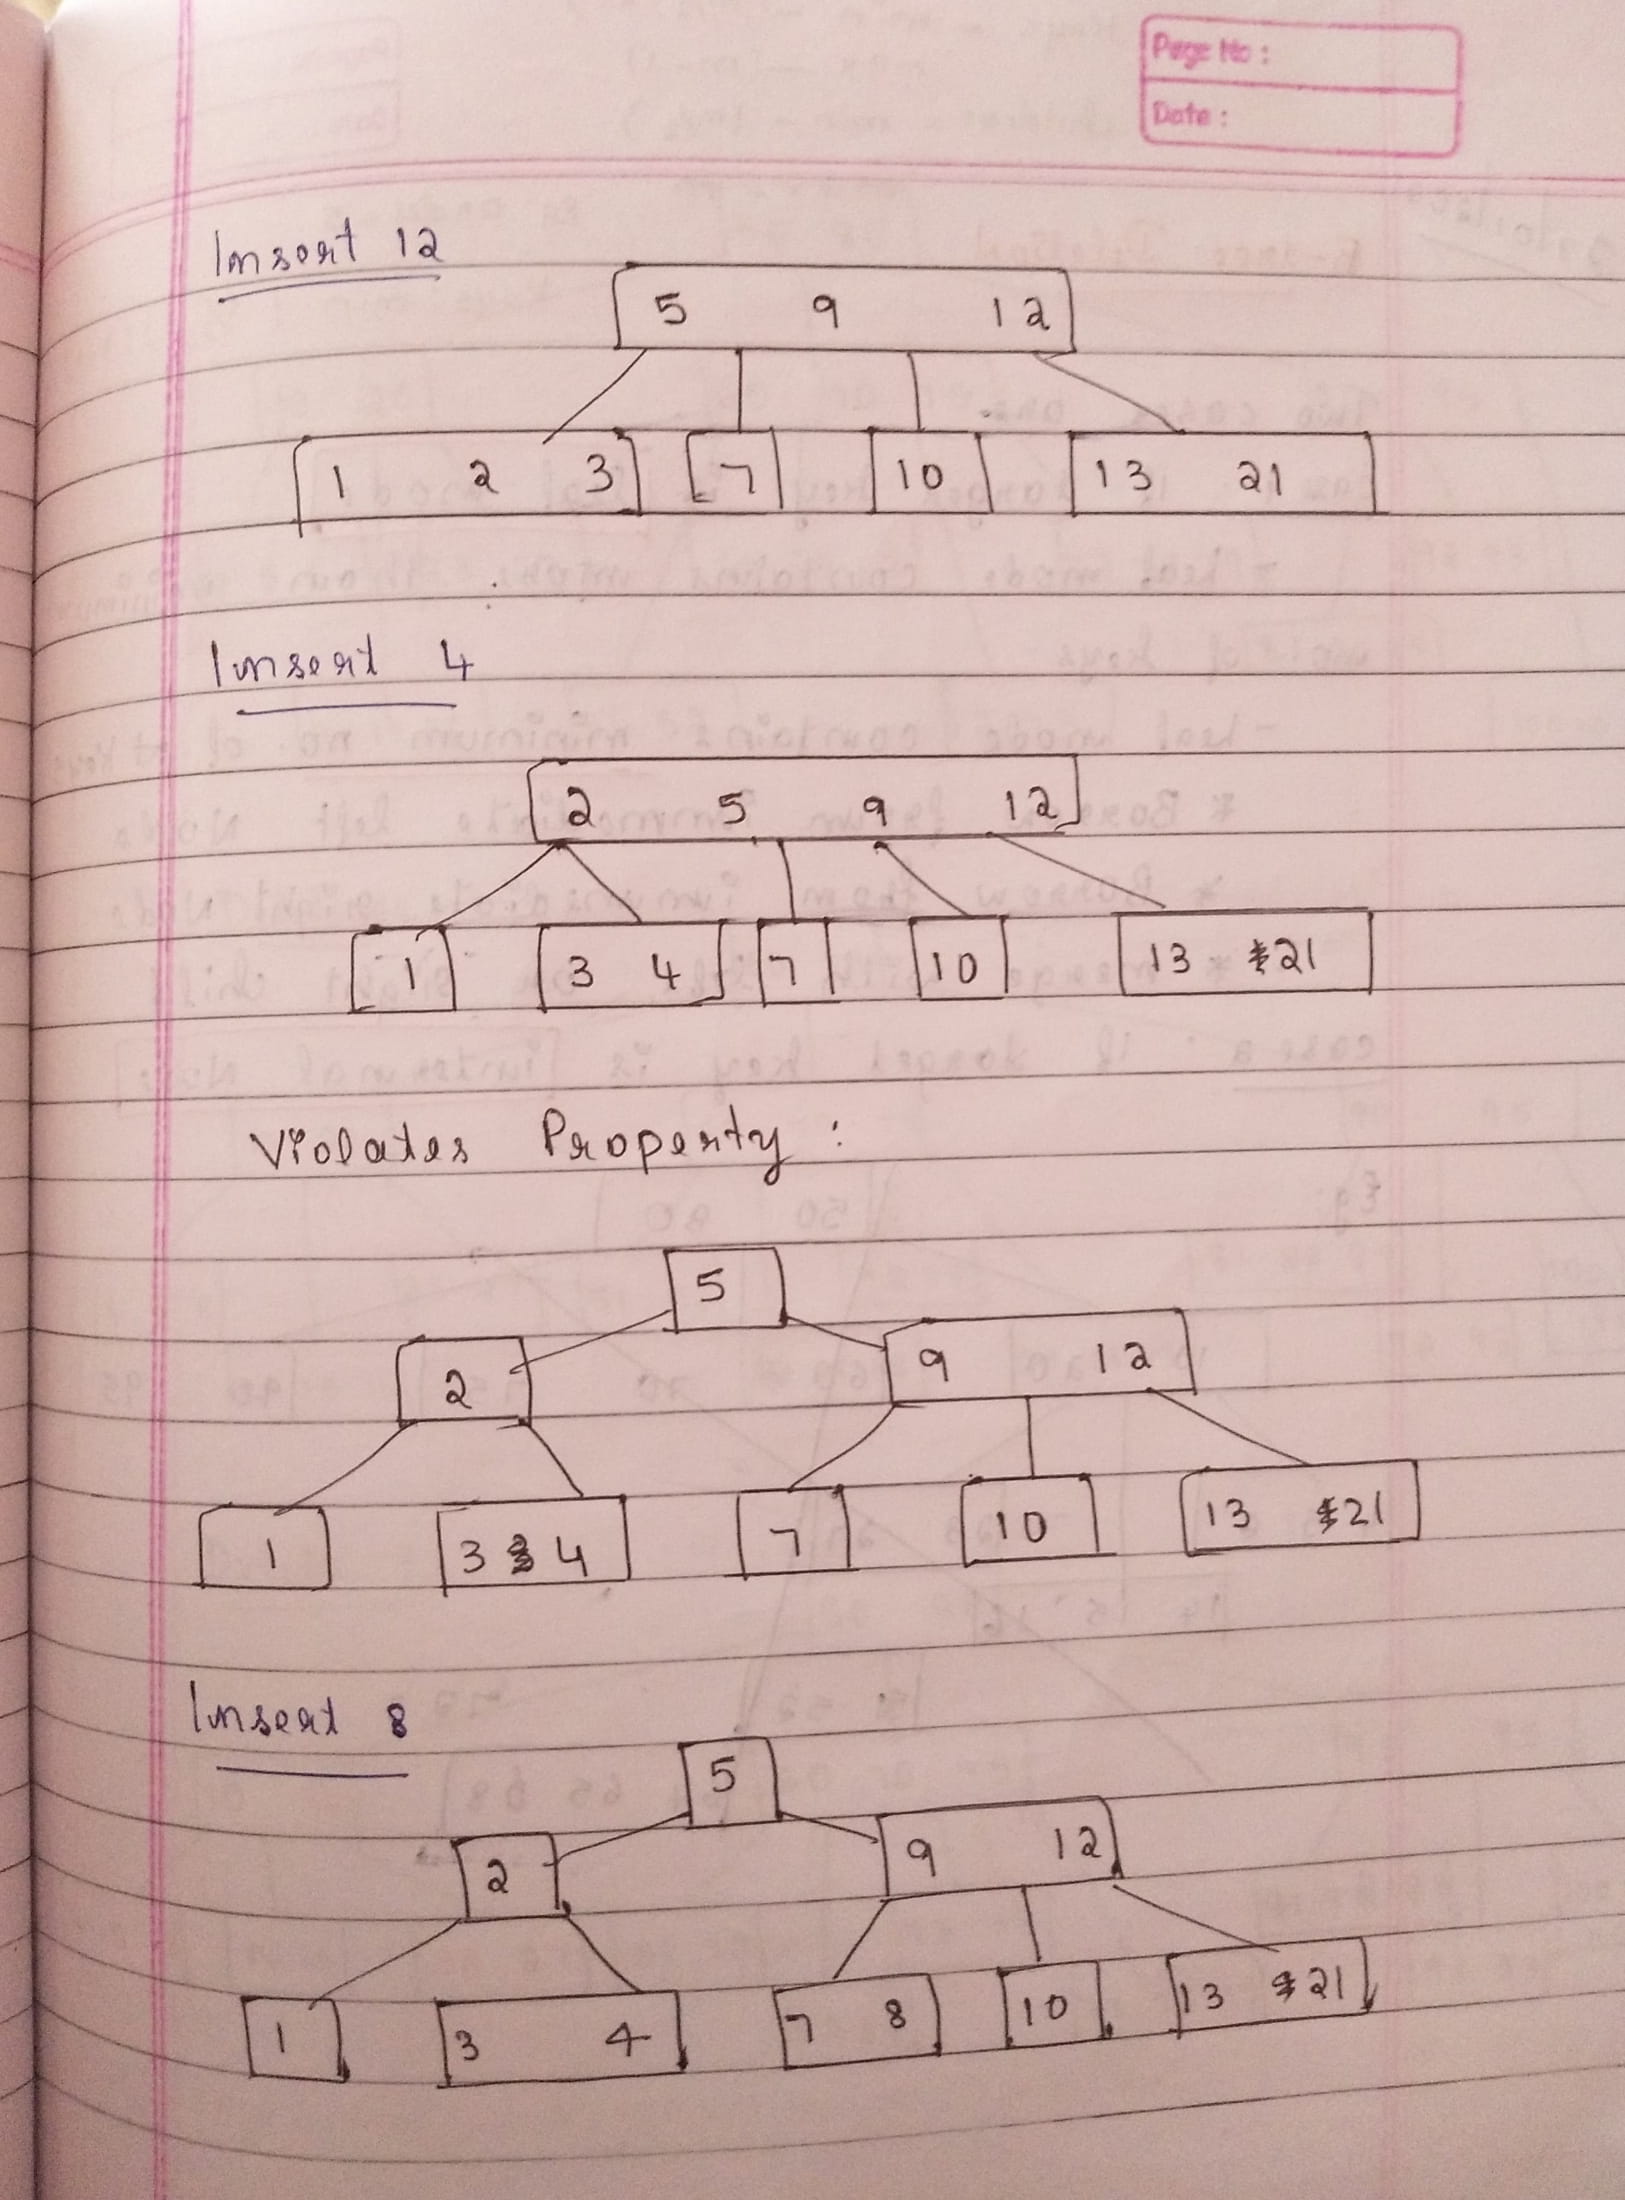 Page No :
Date :
Insert 12
5 9 12
1 2 3 7 10 13 21
Insert 4
2 5 9 12
1 3 4 7 10 13 21
Violates Property :
5
2 9 12
1 3 4 7 10 13 21
Insert 8
5
2 9 12
1 3 4 7 8 10 13 21